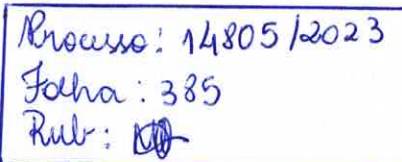 Processo: 14805/2023
Folha: 385
Rub: